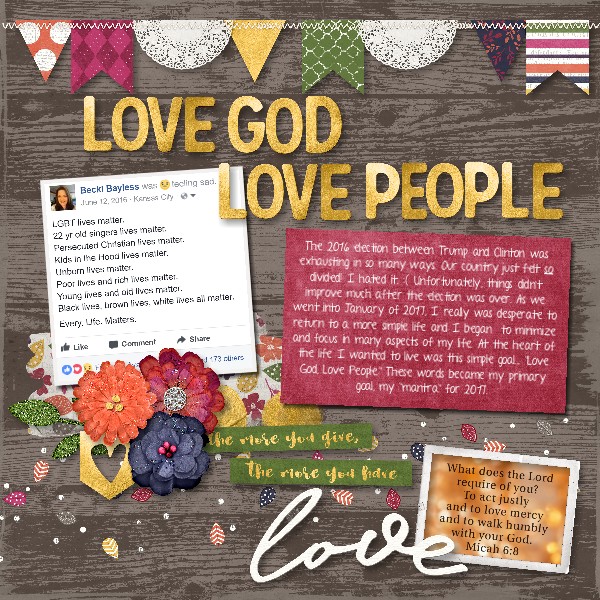 LOVE GOD
LOVE PEOPLE
Becki Bayless was feeling sad.
June 12, 2016 · Kansas City
LGBT lives matter.
22 yr old singers lives matter.
Persecuted Christian lives matter.
Kids in the Hood lives matter.
Unborn lives matter.
Poor lives and rich lives matter.
Young lives and old lives matter.
Black lives, brown lives, white lives all matter.
Every. Life. Matters.
Like Comment Share
173 others
The 2016 election between Trump and Clinton was
exhausting in so many ways. Our country just felt so
divided! I hated it. :( Unfortunately, things didn't
improve much after the election was over. As we
went into January of 2017, I really was desperate to
return to a more simple life and I began to minimize
and focus in many aspects of my life. At the heart of
the life I wanted to live was this simple goal... "Love
God, Love People." These words became my primary
goal, my "mantra" for 2017.
the more you give,
the more you have
love
What does the Lord
require of you?
To act justly
and to love mercy
and to walk humbly
with your God.
Micah 6:8